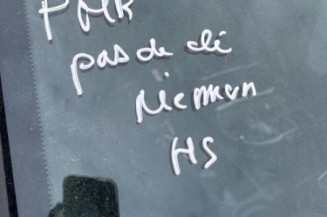 PMR
pas de clé
Neiman
HS